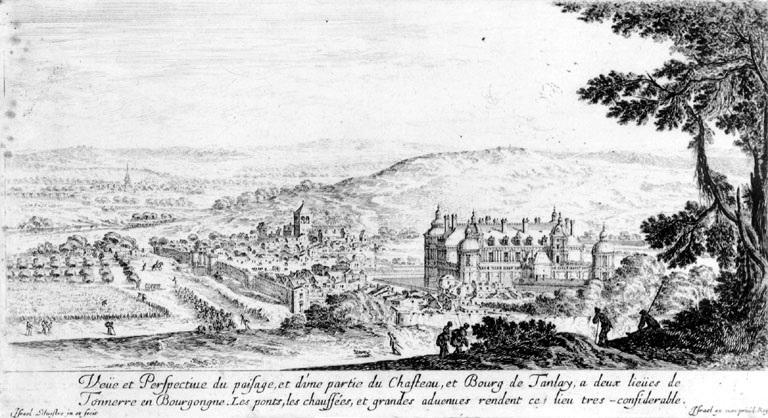 Veüe et Perspectiue du païsage, et d'une partie du Chasteau, et Bourg de Tanlay, a deux lieües de
Tonnerre en Bourgongne. Les ponts, les chaussées, et grandes aduenues rendent ce lieu tres-considerable.
Israel Siluestre in et fecit
Israel ex cum priuil. Regis